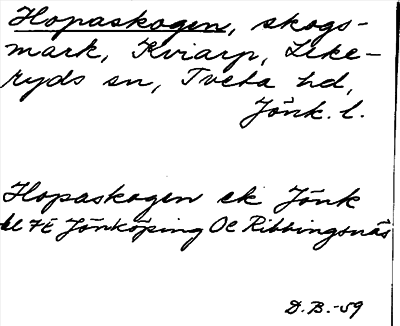 Hopaskogen, skogs-
mark, Kviarp, Leke-
ryds sn, Tveta hd,
Jönk. l.
Hopaskogen ek Jönk
bl 7E Jönköping Oc Ribbingsnäs
D.B.-59